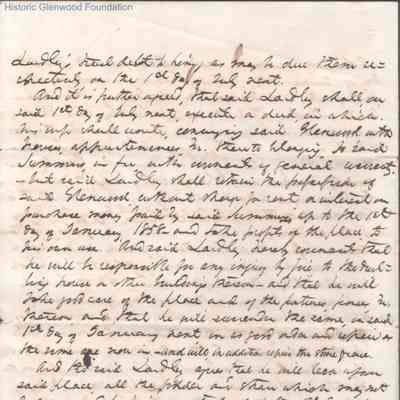 Historic Glenwood Foundation
Laidley's total debt & being as may be due them re-
spectively on the 1st day of July next.
And it is further agreed, that said Laidley shall on
said 1st day of July next, execute a deed in which
his wife shall unite, conveying said Glenwood with
houses, appurtenances &c. thereto belonging to said
Summers in fee with covenants of general warranty
- but said Laidley shall retain the possession of
said Glenwood without charge for rent or interest on
purchase money paid by said Summers up to the 1st
day of January 1858 and take the profits of the place to
his own use. And said Laidley hereby covenants that
he will be responsible for any injury by fire to the dwel-
ling house or other buildings thereon - and that he will
take good care of the place and of the pastures, fences &c.
thereon and that he will surrender the same, on said
1st day of January next in as good order and repair as
the same are now in - and will in addition repair the stone fence.
And the said Laidley agrees that he will leave upon
said place all the fodder &c then which may not